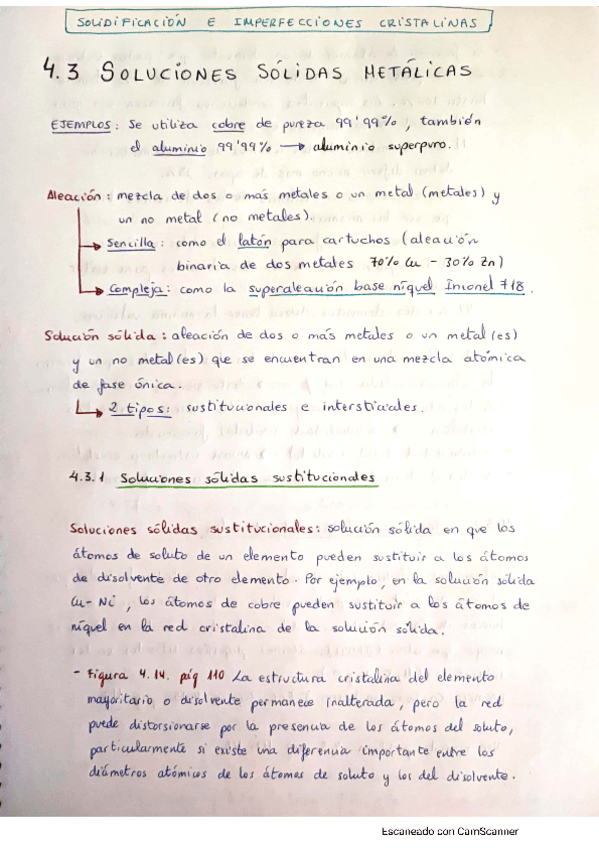 SOLIDIFICACIÓN E IMPERFECCIONES CRISTALINAS
4.3 SOLUCIONES SÓLIDAS METÁLICAS
EJEMPLOS: Se utiliza cobre de pureza 99'99%, también
el aluminio 99'99% → aluminio superpuro.
Aleación: mezcla de dos o más metales o un metal (metales) y
un no metal (no metales).
Sencilla: como el latón para cartuchos (aleación
binaria de dos metales 70% Cu - 30% Zn)
Compleja: como la superaleación base níquel Inconel 718.
Solución sólida: aleación de dos o más metales o un metal(es)
y un no metal(es) que se encuentran en una mezcla atómica
de fase única.
2 tipos: sustitucionales e intersticiales.
4.3.1 Soluciones sólidas sustitucionales
Soluciones sólidas sustitucionales: solución sólida en que los
átomos de soluto de un elemento pueden sustituir a los átomos
de disolvente de otro elemento. Por ejemplo, en la solución sólida
Cu-Ni, los átomos de cobre pueden sustituir a los átomos de
níquel en la red cristalina de la solución sólida.
- Figura 4.14. pág 110 La estructura cristalina del elemento
mayoritario o disolvente permanece inalterada, pero la red
puede distorsionarse por la presencia de los átomos del soluto,
particularmente si existe una diferencia importante entre los
diámetros atómicos de los átomos de soluto y los del disolvente.
Escaneado con CamScanner